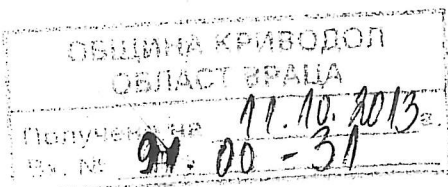 ОБЩИНА КРИВОДОЛ
ОБЛАСТ ВРАЦА
Получено на 11.10.2013 г.
Вх. № 91.00-31